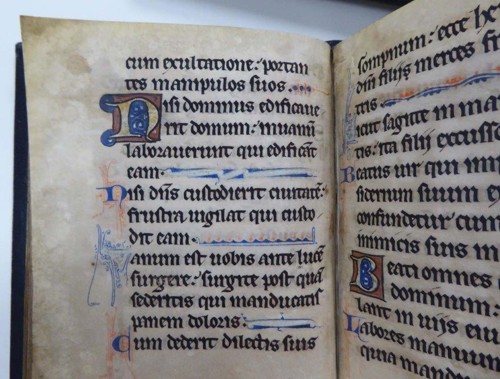 cum exultatione: portan
tes manipulos suos.
Nisi dominus edificaue
rit domum: inuanū
laborauerunt qui edificāt
eam.
Nisi dn̄s custodierit ciuitatē:
frustra uigilat qui custo
dit eam.
Uanum est uobis ante lucē
surgere: surgite post quā
sederitis qui manducatis
panem doloris:
Cum dederit dilectis suis
sompnum: ecce
dn̄i filij merces
tris
Sicut sagitte in
tis: ita filij
Beatus uir qui
siderium suum
confundetur cum
inimicis suis
Beati omnes
dominum:
lant in uijs
Labores
quia